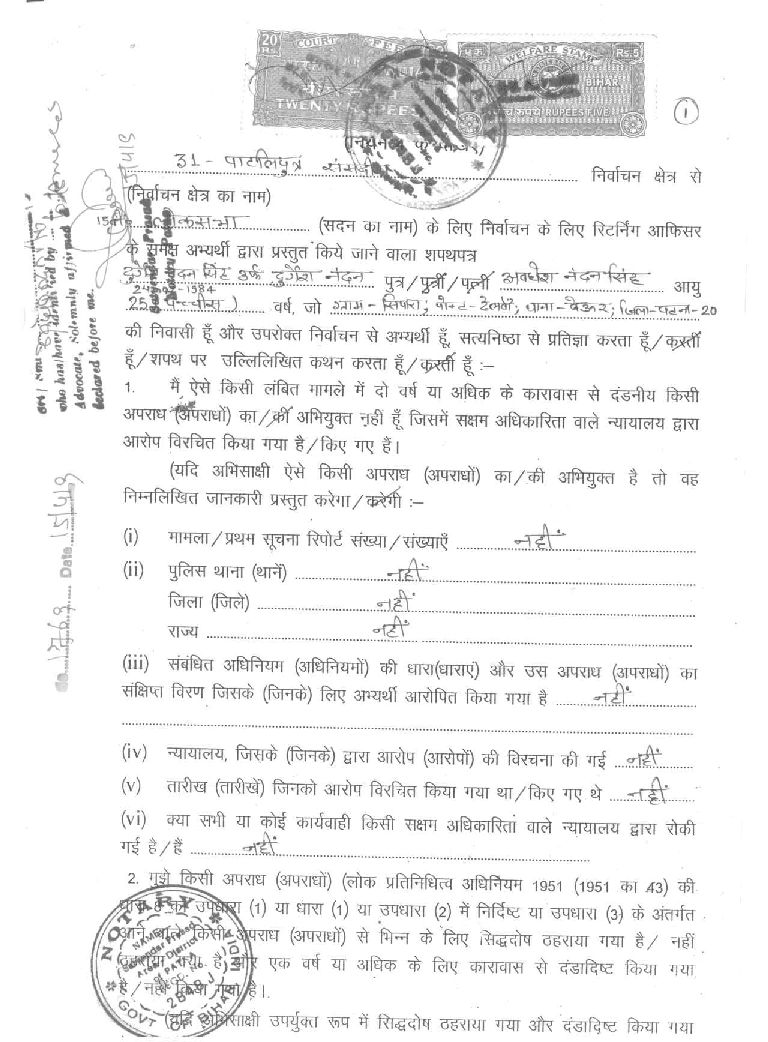 20 Rs. COURT FEE 20 Rs.
TWENTY RUPEES
भारत WELFARE STAMP Rs.5
BIHAR
पाँच रुपये RUPEES FIVE
1
31 - पाटलिपुत्र संसदीय निर्वाचन क्षेत्र से
(निर्वाचन क्षेत्र का नाम)
लोकसभा (सदन का नाम) के लिए निर्वाचन के लिए रिटर्निंग आफिसर
के समक्ष अभ्यर्थी द्वारा प्रस्तुत किये जाने वाला शपथपत्र
दुर्गेश नंदन सिंह उर्फ दुर्गेश नंदन पुत्र/पुत्री/पत्नी अवधेश नंदन सिंह आयु
25 (पच्चीस) वर्ष, जो ग्राम - सिपारा; पोस्ट - ढेलवाँ; थाना - बेऊर; जिला - पटना - 20
की निवासी हूँ और उपरोक्त निर्वाचन से अभ्यर्थी हूँ, सत्यनिष्ठा से प्रतिज्ञा करता हूँ/करती
हूँ/शपथ पर उल्लिलिखित कथन करता हूँ/करती हूँ :–
1. मैं ऐसे किसी लंबित मामले में दो वर्ष या अधिक के कारावास से दंडनीय किसी
अपराध (अपराधों) का/की अभियुक्त नहीं हूँ जिसमें सक्षम अधिकारिता वाले न्यायालय द्वारा
आरोप विरचित किया गया है/किए गए हैं।
(यदि अभिसाक्षी ऐसे किसी अपराध (अपराधों) का/की अभियुक्त है तो वह
निम्नलिखित जानकारी प्रस्तुत करेगा/करेगी :–
(i) मामला/प्रथम सूचना रिपोर्ट संख्या/संख्याएँ नहीं
(ii) पुलिस थाना (थानें) नहीं
जिला (जिले) नहीं
राज्य नहीं
(iii) संबंधित अधिनियम (अधिनियमों) की धारा(धाराएं) और उस अपराध (अपराधों) का
संक्षिप्त विरण जिसके (जिनके) लिए अभ्यर्थी आरोपित किया गया है नहीं
(iv) न्यायालय, जिसके (जिनके) द्वारा आरोप (आरोपों) की विरचना की गई नहीं
(v) तारीख (तारीखें) जिनको आरोप विरचित किया गया था/किए गए थे नहीं
(vi) क्या सभी या कोई कार्यवाही किसी सक्षम अधिकारिता वाले न्यायालय द्वारा रोकी
गई है/हैं नहीं
2. मुझे किसी अपराध (अपराधों) (लोक प्रतिनिधित्व अधिनियम 1951 (1951 का 43) की
धारा 8 की उपधारा (1) या धारा (1) या उपधारा (2) में निर्दिष्ट या उपधारा (3) के अंतर्गत
आने वाले किसी अपराध (अपराधों) से भिन्न के लिए सिद्धदोष ठहराया गया है/ नहीं
ठहराया गया है) और एक वर्ष या अधिक के लिए कारावास से दंडादिष्ट किया गया
है/नहीं किया गया है।
(यदि अभिसाक्षी उपर्युक्त रूप में सिद्धदोष ठहराया गया और दंडादिष्ट किया गया
NOTARY
GOVT OF BIHAR
INDIA
who has/have identified by
Advocate, Solemnly affirmed &
declared before me.
Date